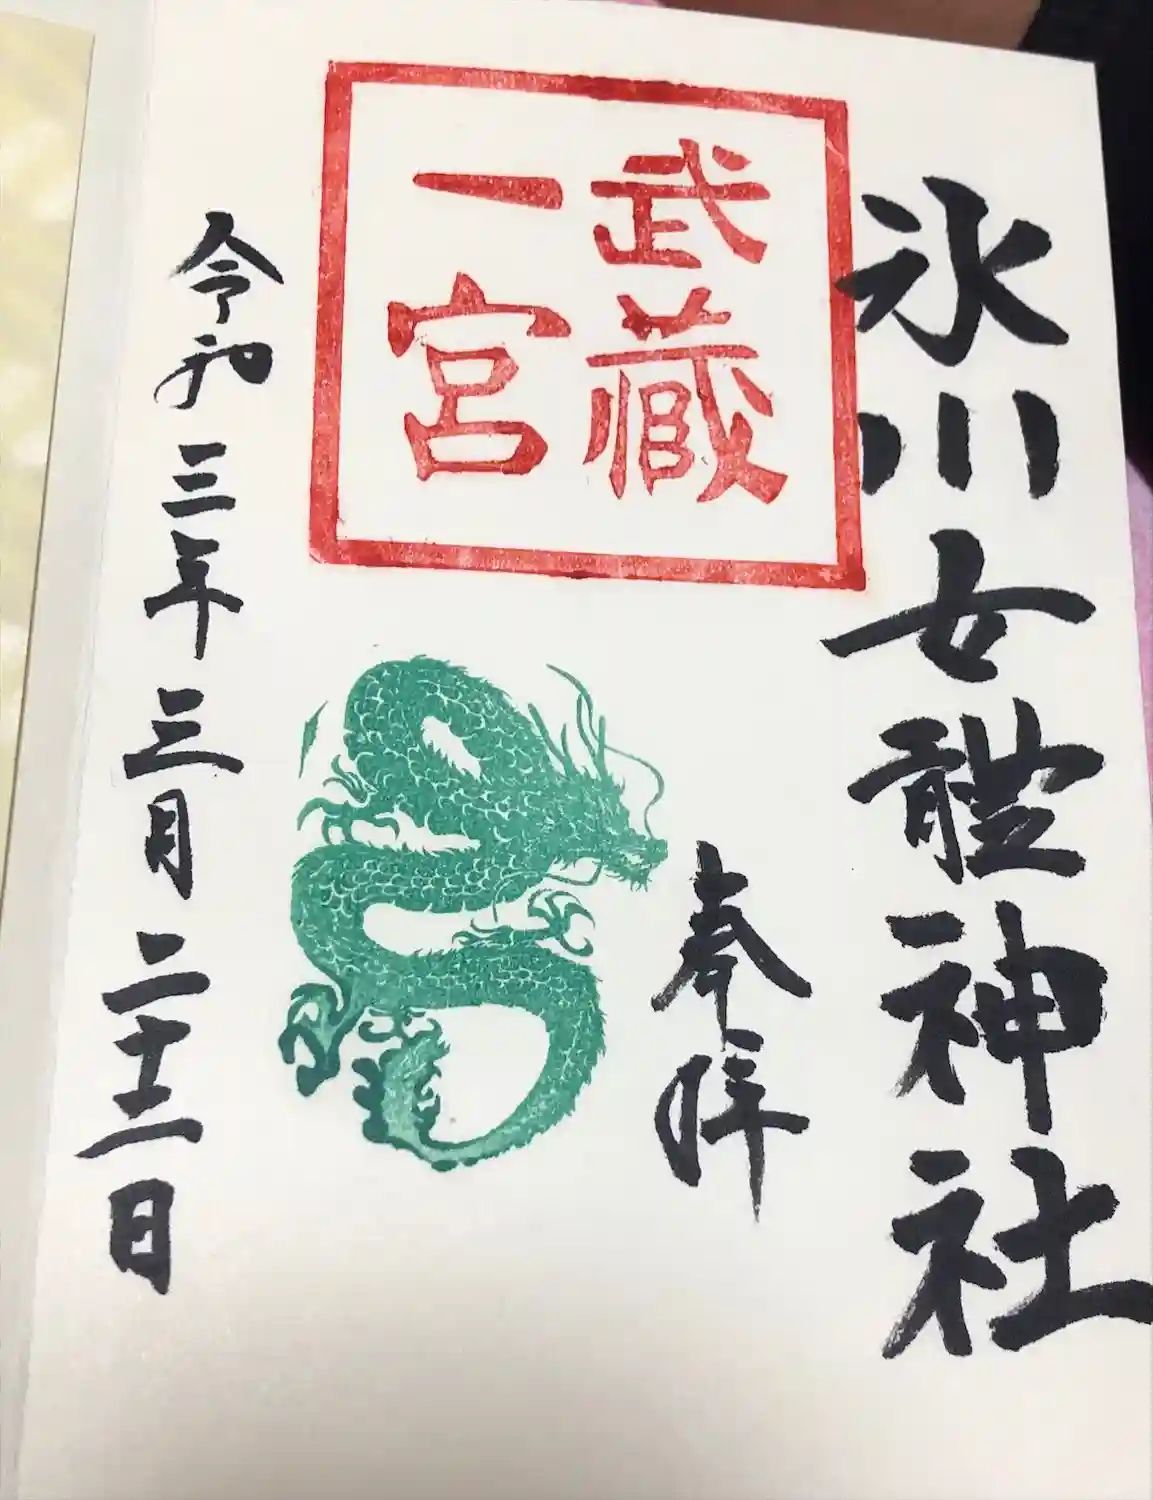 氷川女體神社
武藏
一宮
奉拝
令和三年三月二十二日